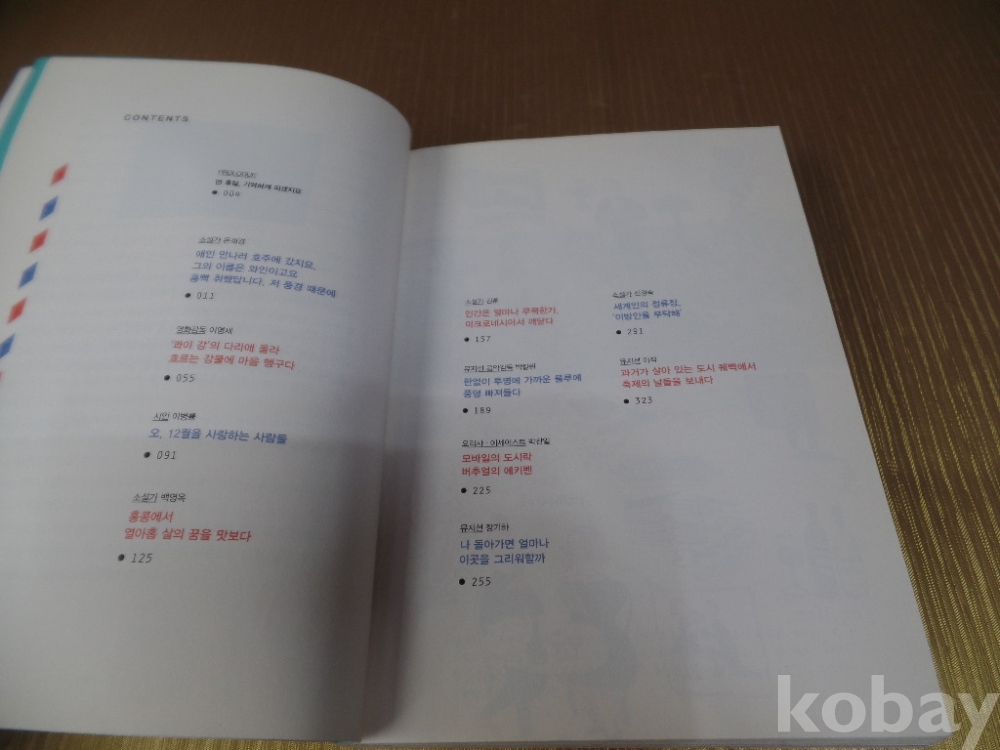 CONTENTS
PROLOGUE
먼 훗일, 기억하게 되겠지요
009
소설가 은희경
애인 만나러 호주에 갔지요,
그의 이름은 와인이고요
흠뻑 취했답니다, 저 풍경 때문에
011
영화감독 이명세
'콰이 강'의 다리에 올라
흐르는 강물에 마음 헹구다
055
시인 이병률
오, 12월을 사랑하는 사람들
091
소설가 백영옥
홍콩에서
열아홉 살의 꿈을 맛보다
125
소설가 김훈
인간은 얼마나 무력한가,
미크로네시아서 깨닫다
157
뮤지션·음악감독 박칼린
한없이 투명에 가까운 블루에
풍덩 빠져들다
189
요리사·에세이스트 박찬일
모바일의 도시락
버추얼의 에키벤
225
뮤지션 장기하
나 돌아가면 얼마나
이곳을 그리워할까
255
소설가 신경숙
세계인의 정류장,
'이방인를 부탁해'
291
뮤지션 이적
과거가 살아 있는 도시 퀘벡에서
축제의 날들을 보내다
323
kobay